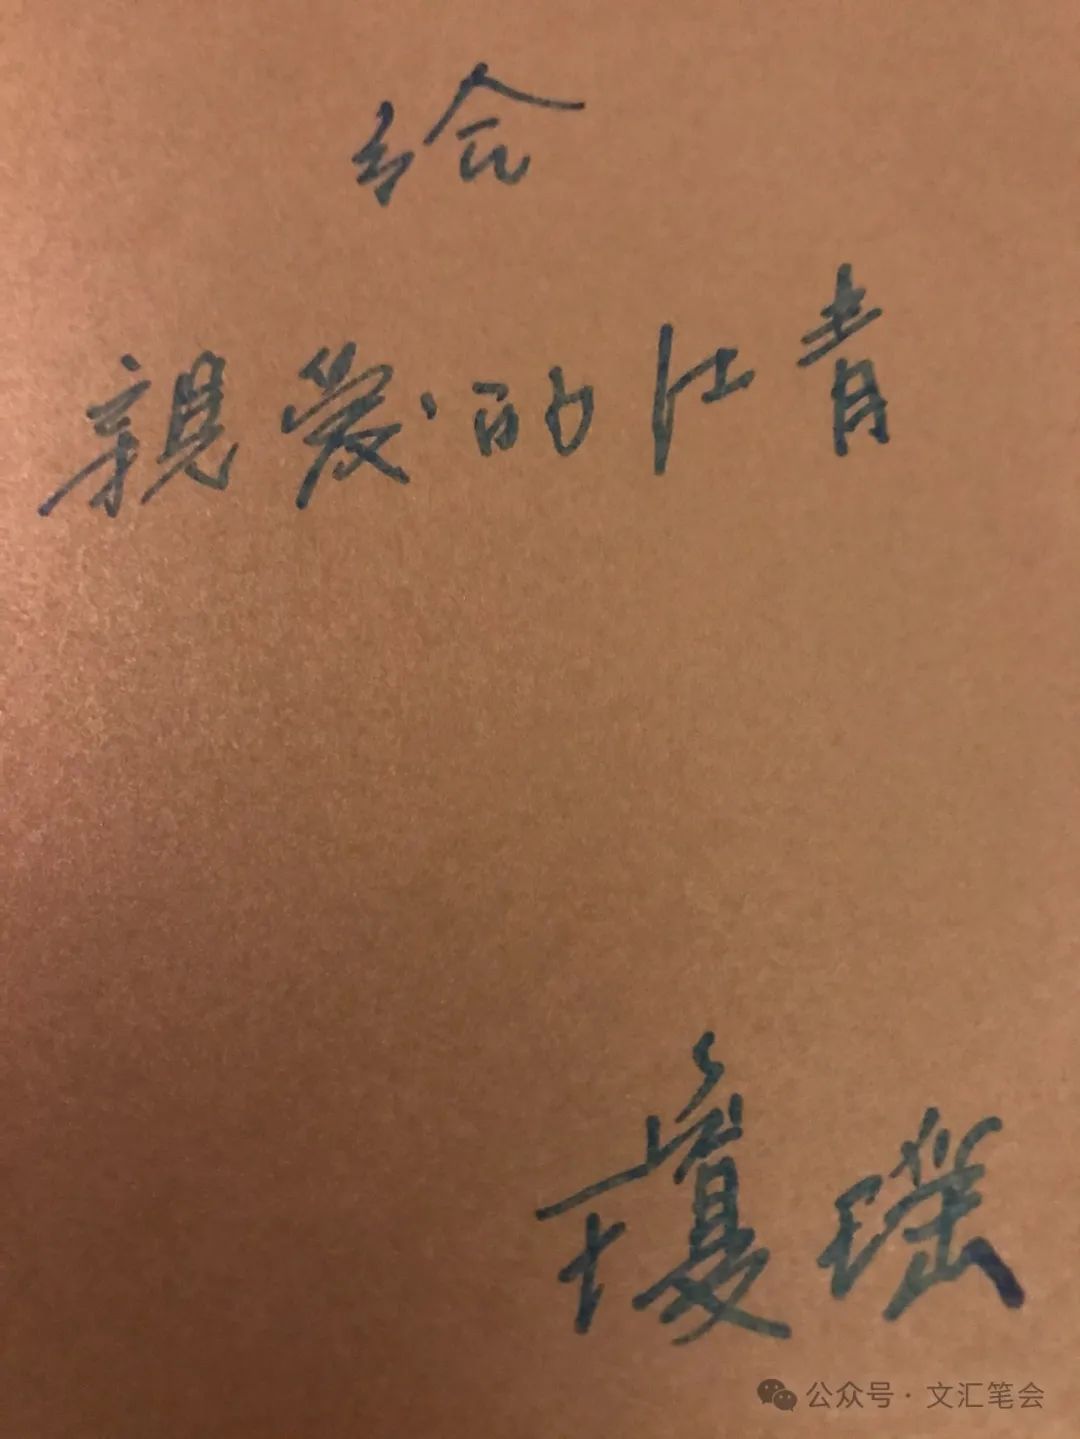 給
親愛的江青
瓊瑤
公众号·文汇笔会